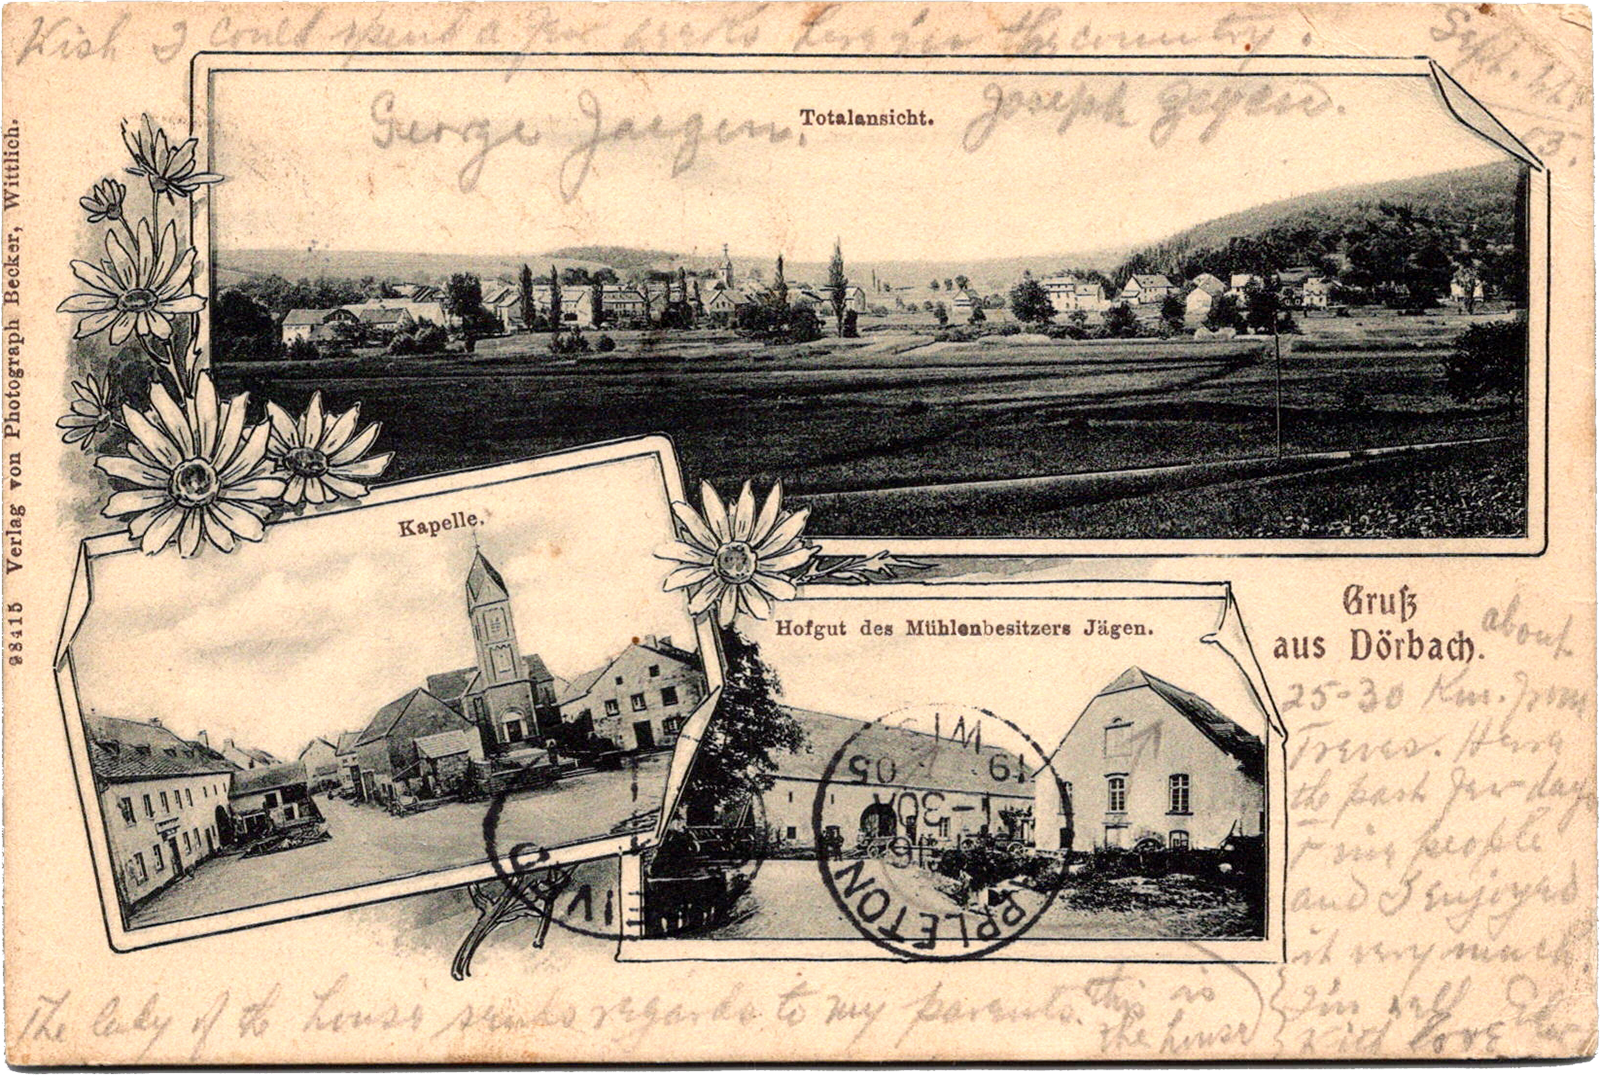 Wish I could spend a few weeks here in the country.
Sept.
05.
George Jaegen.
Joseph Jegen.
Totalansicht.
98415 Verlag von Photograph Becker, Wittlich.
Kapelle.
Hofgut des Mühlenbesitzers Jägen.
Gruß
aus Dörbach.
about
25-30 Km. from
Treves. Here
the past few days
ing people
and I enjoyed
it very much.
I'm well
with love
WIS
19 05
-30A
16
APPLETON
IVED
The lady of the house sends regards to my parents.
this is
the house